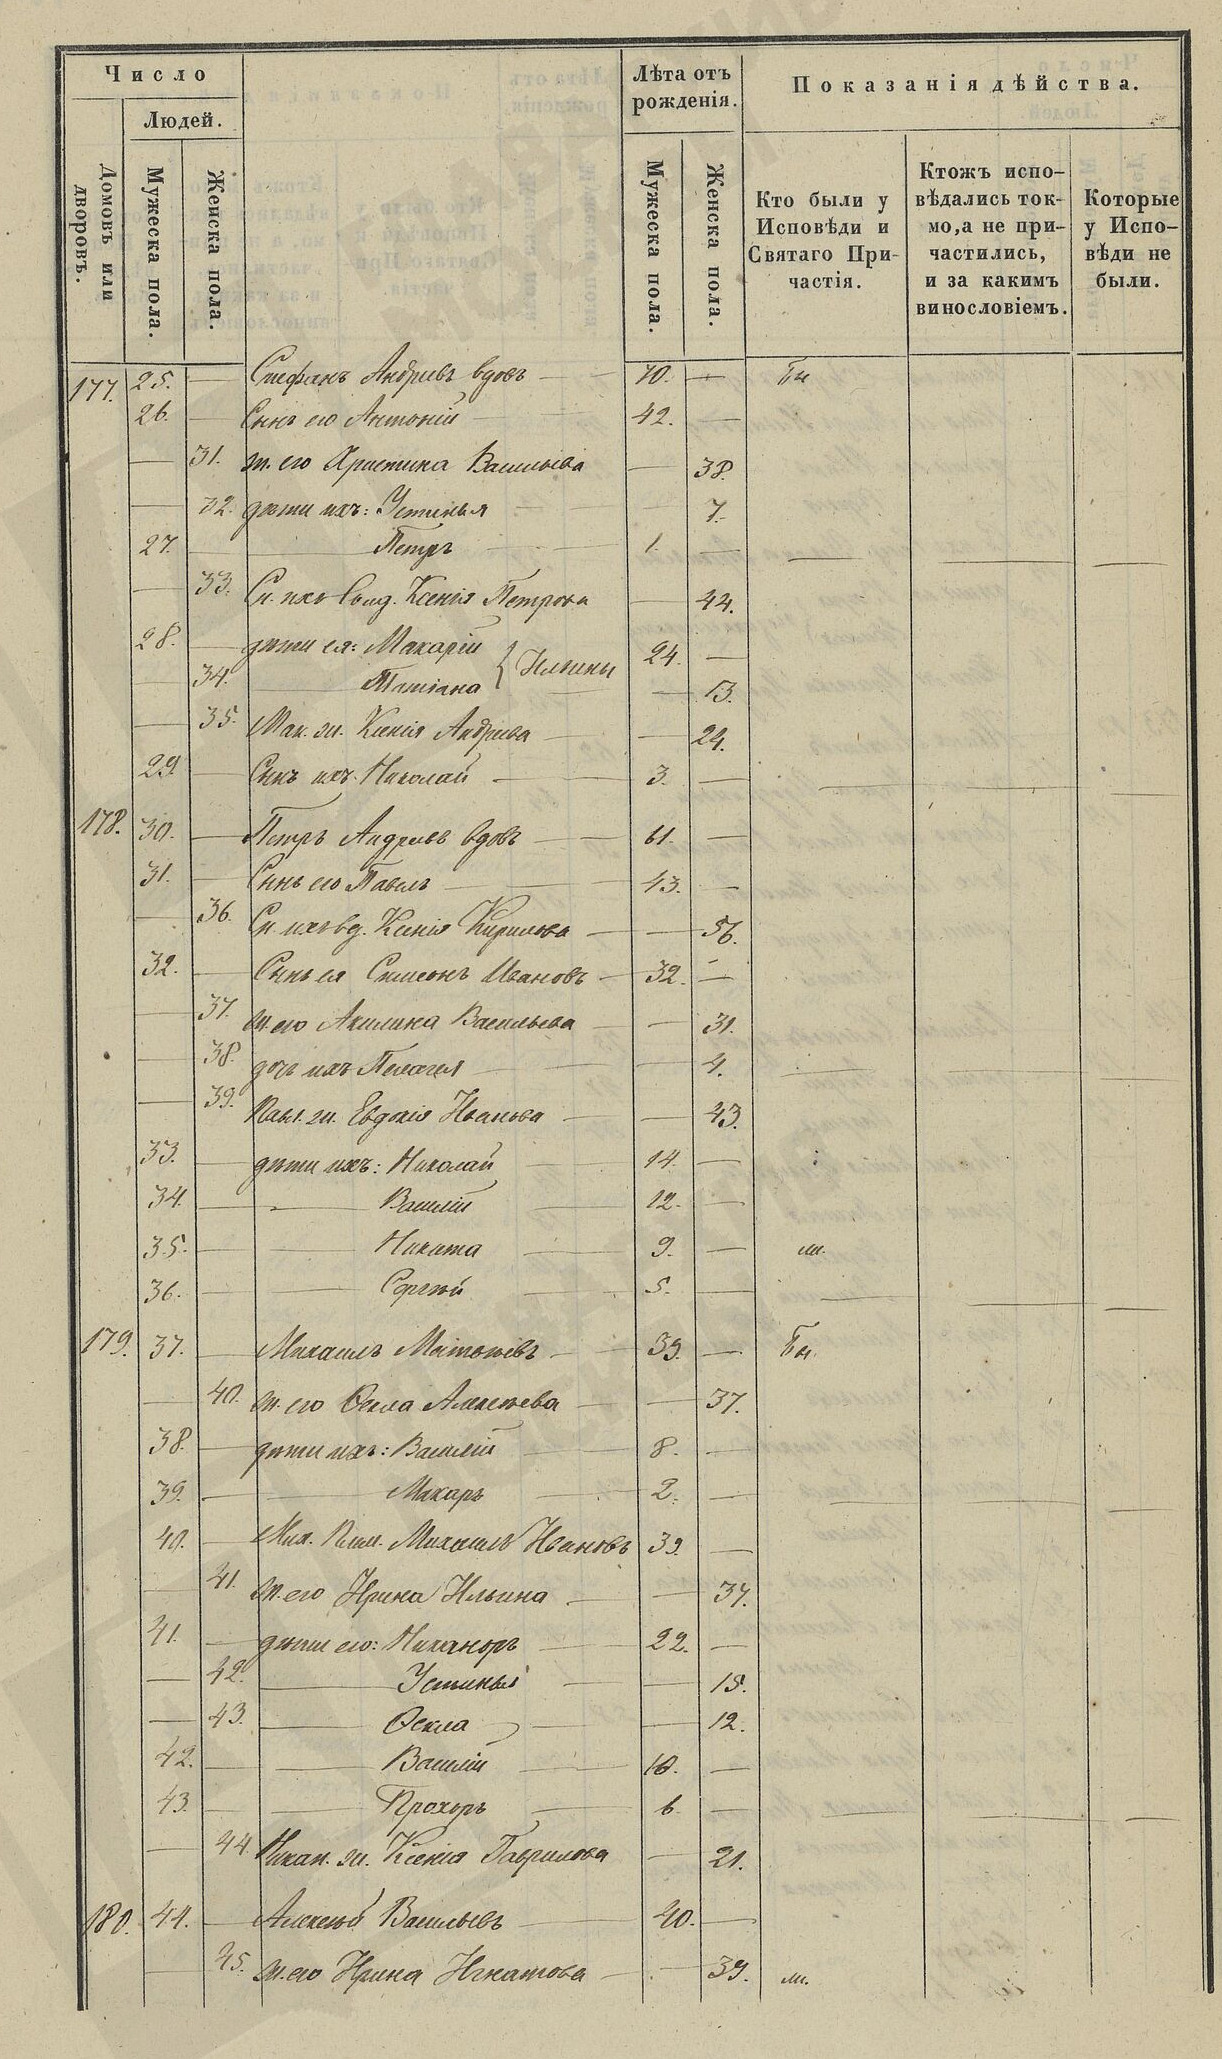 Число
Людей.
Домовъ или дворовъ.
Мужеска пола.
Женска пола.
Лѣта отъ рожденія.
Мужеска пола.
Женска пола.
Показанія дѣйства.
Кто были у Исповѣди и Святаго Причастія.
Ктожъ исповѣдались токмо, а не причастились, и за какимъ винословіемъ.
Которые у Исповѣди не были.
177. 25. — Стефанъ Андреевъ вдовъ — 70. — Бы
26. — Сынъ его Антоній — 42. —
— 31. ж. его Христина Васильева — 38.
— 32. дѣти ихъ: Устинья — 7.
27. — Петръ — 1. —
— 33. Ксенія Петрова — 44.
28. — дѣти ея: Макарій } Ильины 24. —
— 34. — Татіана — 13.
— 35. Мак. ж. Ксенія Андреева — 24.
29. — Сынъ ихъ Николай — 3. —
178. 30. — Петръ Андреевъ вдовъ — 61. —
31. — Сынъ его Павелъ — 43. —
— 36. Сн. ихъ вд. Ксенія Кирилова — 56.
32. — Сынъ ея Симеонъ Ивановъ — 32. —
— 37. ж. его Акилина Васильева — 31.
— 38. дочь ихъ Пелагея — 4.
— 39. Павл. ж. Евдокія Иванова — 43.
33. — дѣти ихъ: Николай — 14. —
34. — Василій — 12. —
35. — Никита — 9. — ли.
36. — Сергѣй — 5. —
179. 37. — Михаилъ Матвѣевъ — 39. — Бы.
— 40. ж. его Ѳекла Алексѣева — 37.
38. — дѣти ихъ: Василій — 8. —
39. — Макаръ — 2. —
40. — Михаилъ Ивановъ 39. —
— 41. ж. его Ирина Ильина — 37.
41. — дѣти его: Никаноръ — 22. —
— 42. — Устинья — 15.
— 43. — Ѳекла — 12.
42. — Василій — 10. —
43. — Прохоръ — 6. —
— 44. Никан. ж. Ксенія Гаврилова — 21.
180. 44. — Алексѣй Васильевъ — 40. —
— 45. ж. его Ирина Игнатова — 39. ли.